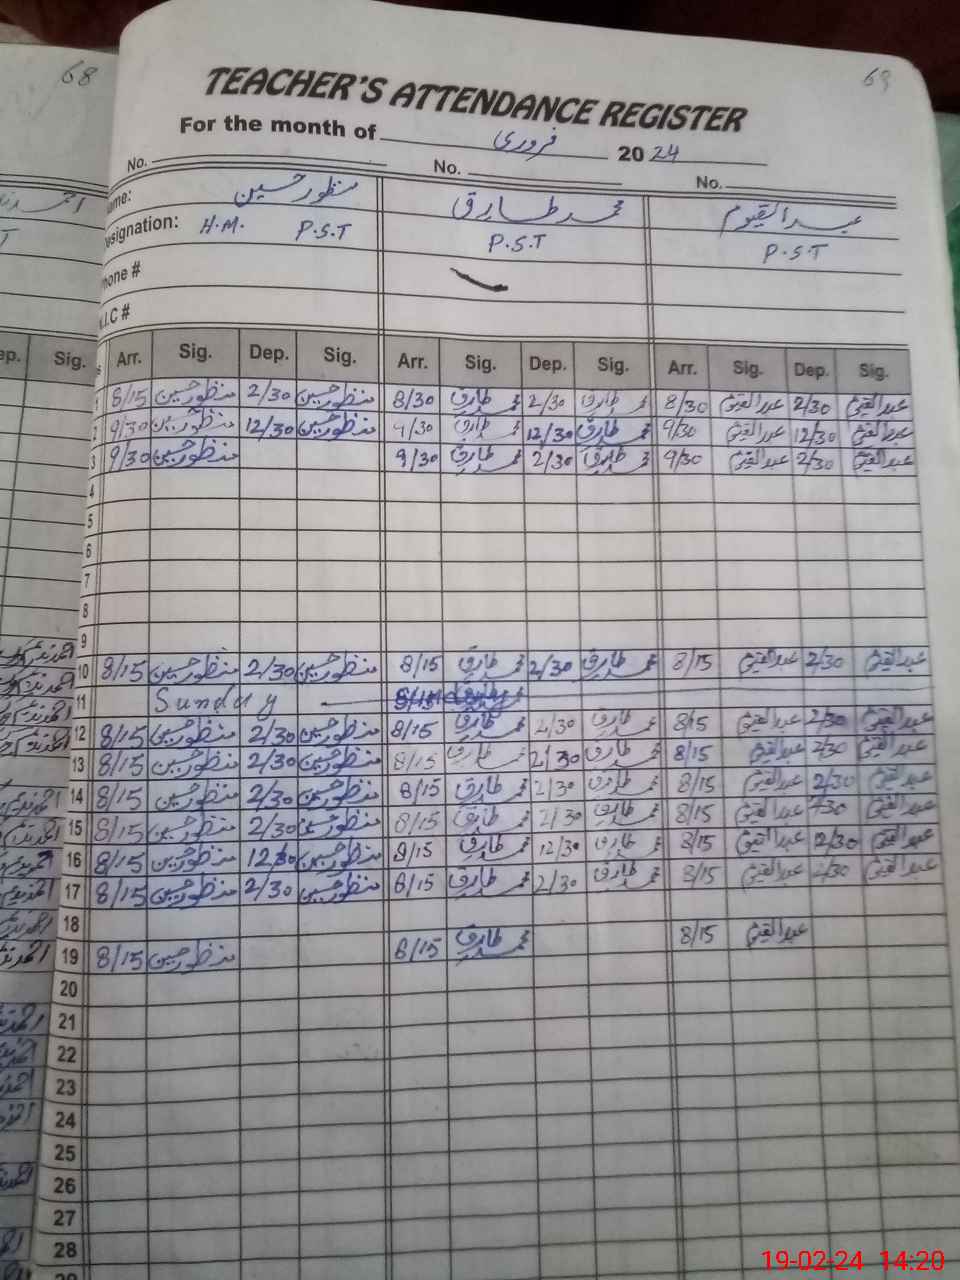 68
69
TEACHER'S ATTENDANCE REGISTER
For the month of فروری 2024
No. No. No.
ame: منظور حسین محمد طارق عبدالقیوم
esignation: H.M. P.S.T P.S.T P.S.T
hone #
.I.C #
ep. Sig. Arr. Sig. Dep. Sig. Arr. Sig. Dep. Sig. Arr. Sig. Dep. Sig.
1 8/15 منظور حسین 2/30 منظور حسین 8/30 محمد طارق 2/30 محمد طارق 8/30 عبدالقیوم 2/30 عبدالقیوم
2 9/30 منظور حسین 12/30 منظور حسین 9/30 محمد طارق 12/30 محمد طارق 9/30 عبدالقیوم 12/30 عبدالقیوم
3 9/30 منظور حسین 9/30 محمد طارق 2/30 محمد طارق 9/30 عبدالقیوم 2/30 عبدالقیوم
4
5
6
7
8
9
10 8/15 منظور حسین 2/30 منظور حسین 8/15 محمد طارق 2/30 محمد طارق 8/15 عبدالقیوم 2/30 عبدالقیوم
11 Sunday
12 8/15 منظور حسین 2/30 منظور حسین 8/15 محمد طارق 2/30 محمد طارق 8/15 عبدالقیوم 2/30 عبدالقیوم
13 8/15 منظور حسین 2/30 منظور حسین 8/15 محمد طارق 2/30 محمد طارق 8/15 عبدالقیوم 2/30 عبدالقیوم
14 8/15 منظور حسین 2/30 منظور حسین 8/15 محمد طارق 2/30 محمد طارق 8/15 عبدالقیوم 2/30 عبدالقیوم
15 8/15 منظور حسین 2/30 منظور حسین 8/15 محمد طارق 2/30 محمد طارق 8/15 عبدالقیوم 2/30 عبدالقیوم
16 8/15 منظور حسین 12/30 منظور حسین 8/15 محمد طارق 12/30 محمد طارق 8/15 عبدالقیوم 12/30 عبدالقیوم
17 8/15 منظور حسین 2/30 منظور حسین 8/15 محمد طارق 2/30 محمد طارق 8/15 عبدالقیوم 2/30 عبدالقیوم
18
19 8/15 منظور حسین 8/15 محمد طارق 8/15 عبدالقیوم
20
21
22
23
24
25
26
27
28
19-02-24 14:20